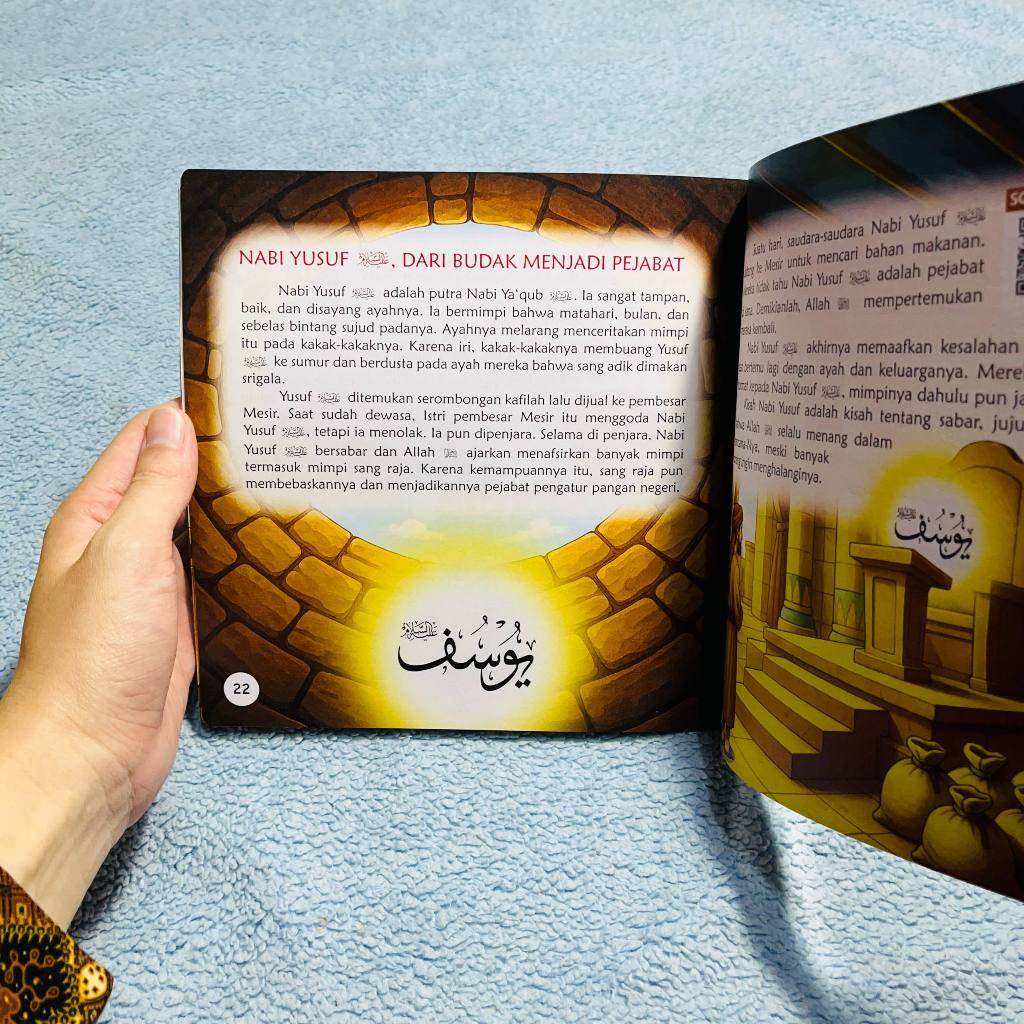 NABI YUSUF عليه السلام, DARI BUDAK MENJADI PEJABAT
Nabi Yusuf عليه السلام adalah putra Nabi Ya'qub عليه السلام. Ia sangat tampan,
baik, dan disayang ayahnya. Ia bermimpi bahwa matahari, bulan, dan
sebelas bintang sujud padanya. Ayahnya melarang menceritakan mimpi
itu pada kakak-kakaknya. Karena iri, kakak-kakaknya membuang Yusuf
عليه السلام ke sumur dan berdusta pada ayah mereka bahwa sang adik dimakan
srigala.
Yusuf عليه السلام ditemukan serombongan kafilah lalu dijual ke pembesar
Mesir. Saat sudah dewasa, Istri pembesar Mesir itu menggoda Nabi
Yusuf عليه السلام, tetapi ia menolak. Ia pun dipenjara. Selama di penjara. Nabi
Yusuf عليه السلام bersabar dan Allah ajarkan menafsirkan banyak mimpi
termasuk mimpi sang raja. Karena kemampuannya itu, sang raja pun
membebaskannya dan menjadikannya pejabat pengatur pangan negeri.
يُوسُف عليه السلام
22
Suatu hari, saudara-saudara Nabi Yusuf عليه السلام
ke Mesir untuk mencari bahan makanan.
tidak tahu Nabi Yusuf عليه السلام adalah pejabat
Demikianlah, Allah mempertemukan
kembali.
Nabi Yusuf عليه السلام akhirnya memaafkan kesalahan
bertemu lagi dengan ayah dan keluarganya.
kepada Nabi Yusuf عليه السلام, mimpinya dahulu pun
Kisah Nabi Yusuf adalah kisah tentang sabar,
Allah selalu menang dalam
meski banyak
ingin menghalanginya.
يُوسُف عليه السلام